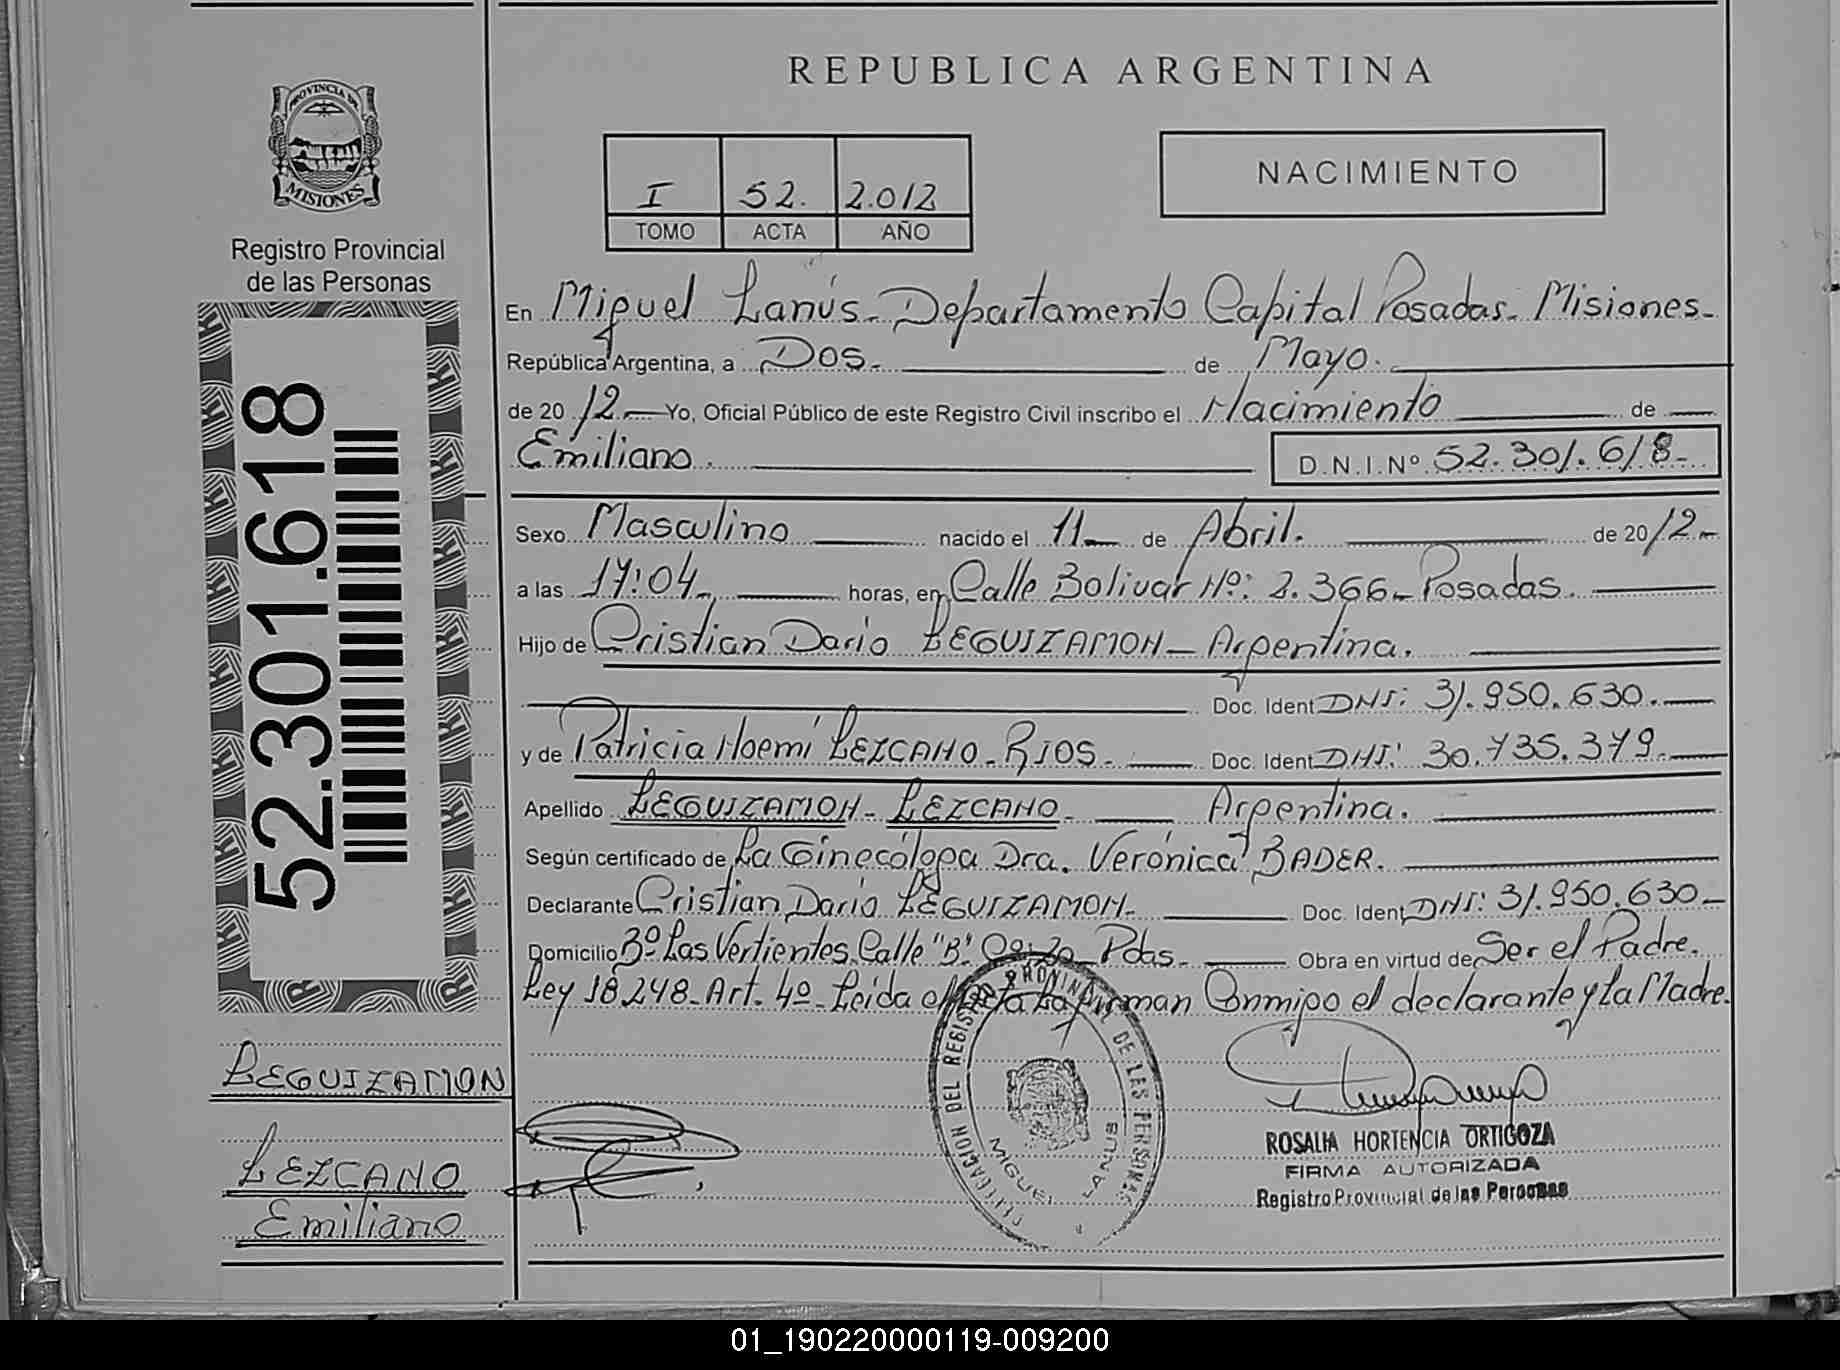 PROVINCIA DE
MISIONES
Registro Provincial
de las Personas
52.301.618
REPUBLICA ARGENTINA
I 52. 2.012
TOMO ACTA AÑO
NACIMIENTO
En Miguel Lanús - Departamento Capital Posadas - Misiones -
República Argentina, a Dos. de Mayo.
de 20 12 Yo, Oficial Público de este Registro Civil inscribo el Nacimiento de
Emiliano. D.N.I.Nº 52.301.618-
Sexo Masculino nacido el 11 de Abril. de 20 12 -
a las 17:04 - horas, en Calle Bolivar Nº: 2.366 - Posadas.
Hijo de Cristian Dario LEGUIZAMON - Argentina.
Doc. Ident DNI: 31.950.630.
y de Patricia Noemí LEZCANO - RIOS - Doc. Ident DNI: 30.735.379.
Apellido LEGUIZAMON - LEZCANO - Argentina.
Según certificado de La Ginecóloga Dra. Verónica BADER.
Declarante Cristian Dario LEGUIZAMON - Doc. Ident DNI: 31.950.630 -
Domicilio Bº Las Vertientes Calle "B" Pdas - Obra en virtud de Ser el Padre.
Ley 18.248 - Art. 4º - Leida el Acta La firman Conmigo el declarante y La Madre.
LEGUIZAMON
LEZCANO
Emiliano
DELEGACION DEL REGISTRO PROVINCIAL DE LAS PERSONAS
MIGUEL LANUS
ROSALIA HORTENCIA ORTIGOZA
FIRMA AUTORIZADA
Registro Provincial de las Personas
01_190220000119-009200